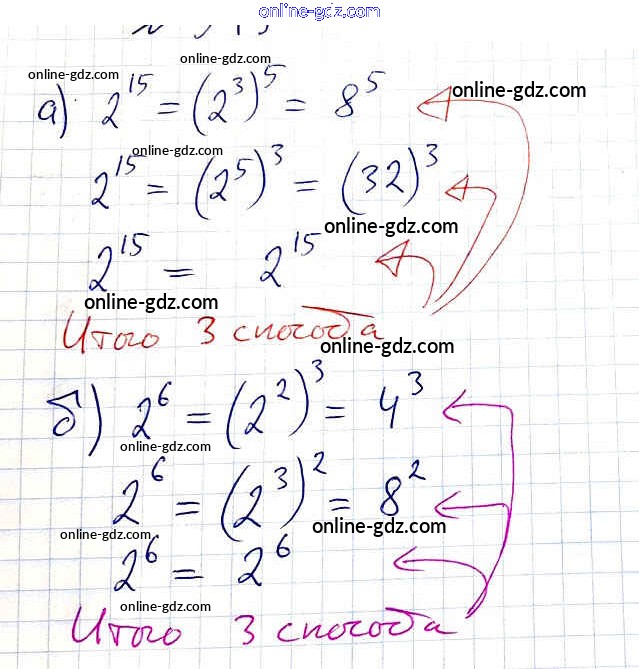 online-gdz.com
online-gdz.com
online-gdz.com
а) 2^15 = (2^3)^5 = 8^5
online-gdz.com
2^15 = (2^5)^3 = (32)^3
online-gdz.com
2^15 = 2^15
online-gdz.com
Итого 3 способа
online-gdz.com
б) 2^6 = (2^2)^3 = 4^3
online-gdz.com
2^6 = (2^3)^2 = 8^2
online-gdz.com
online-gdz.com
2^6 = 2^6
online-gdz.com
Итого 3 способа